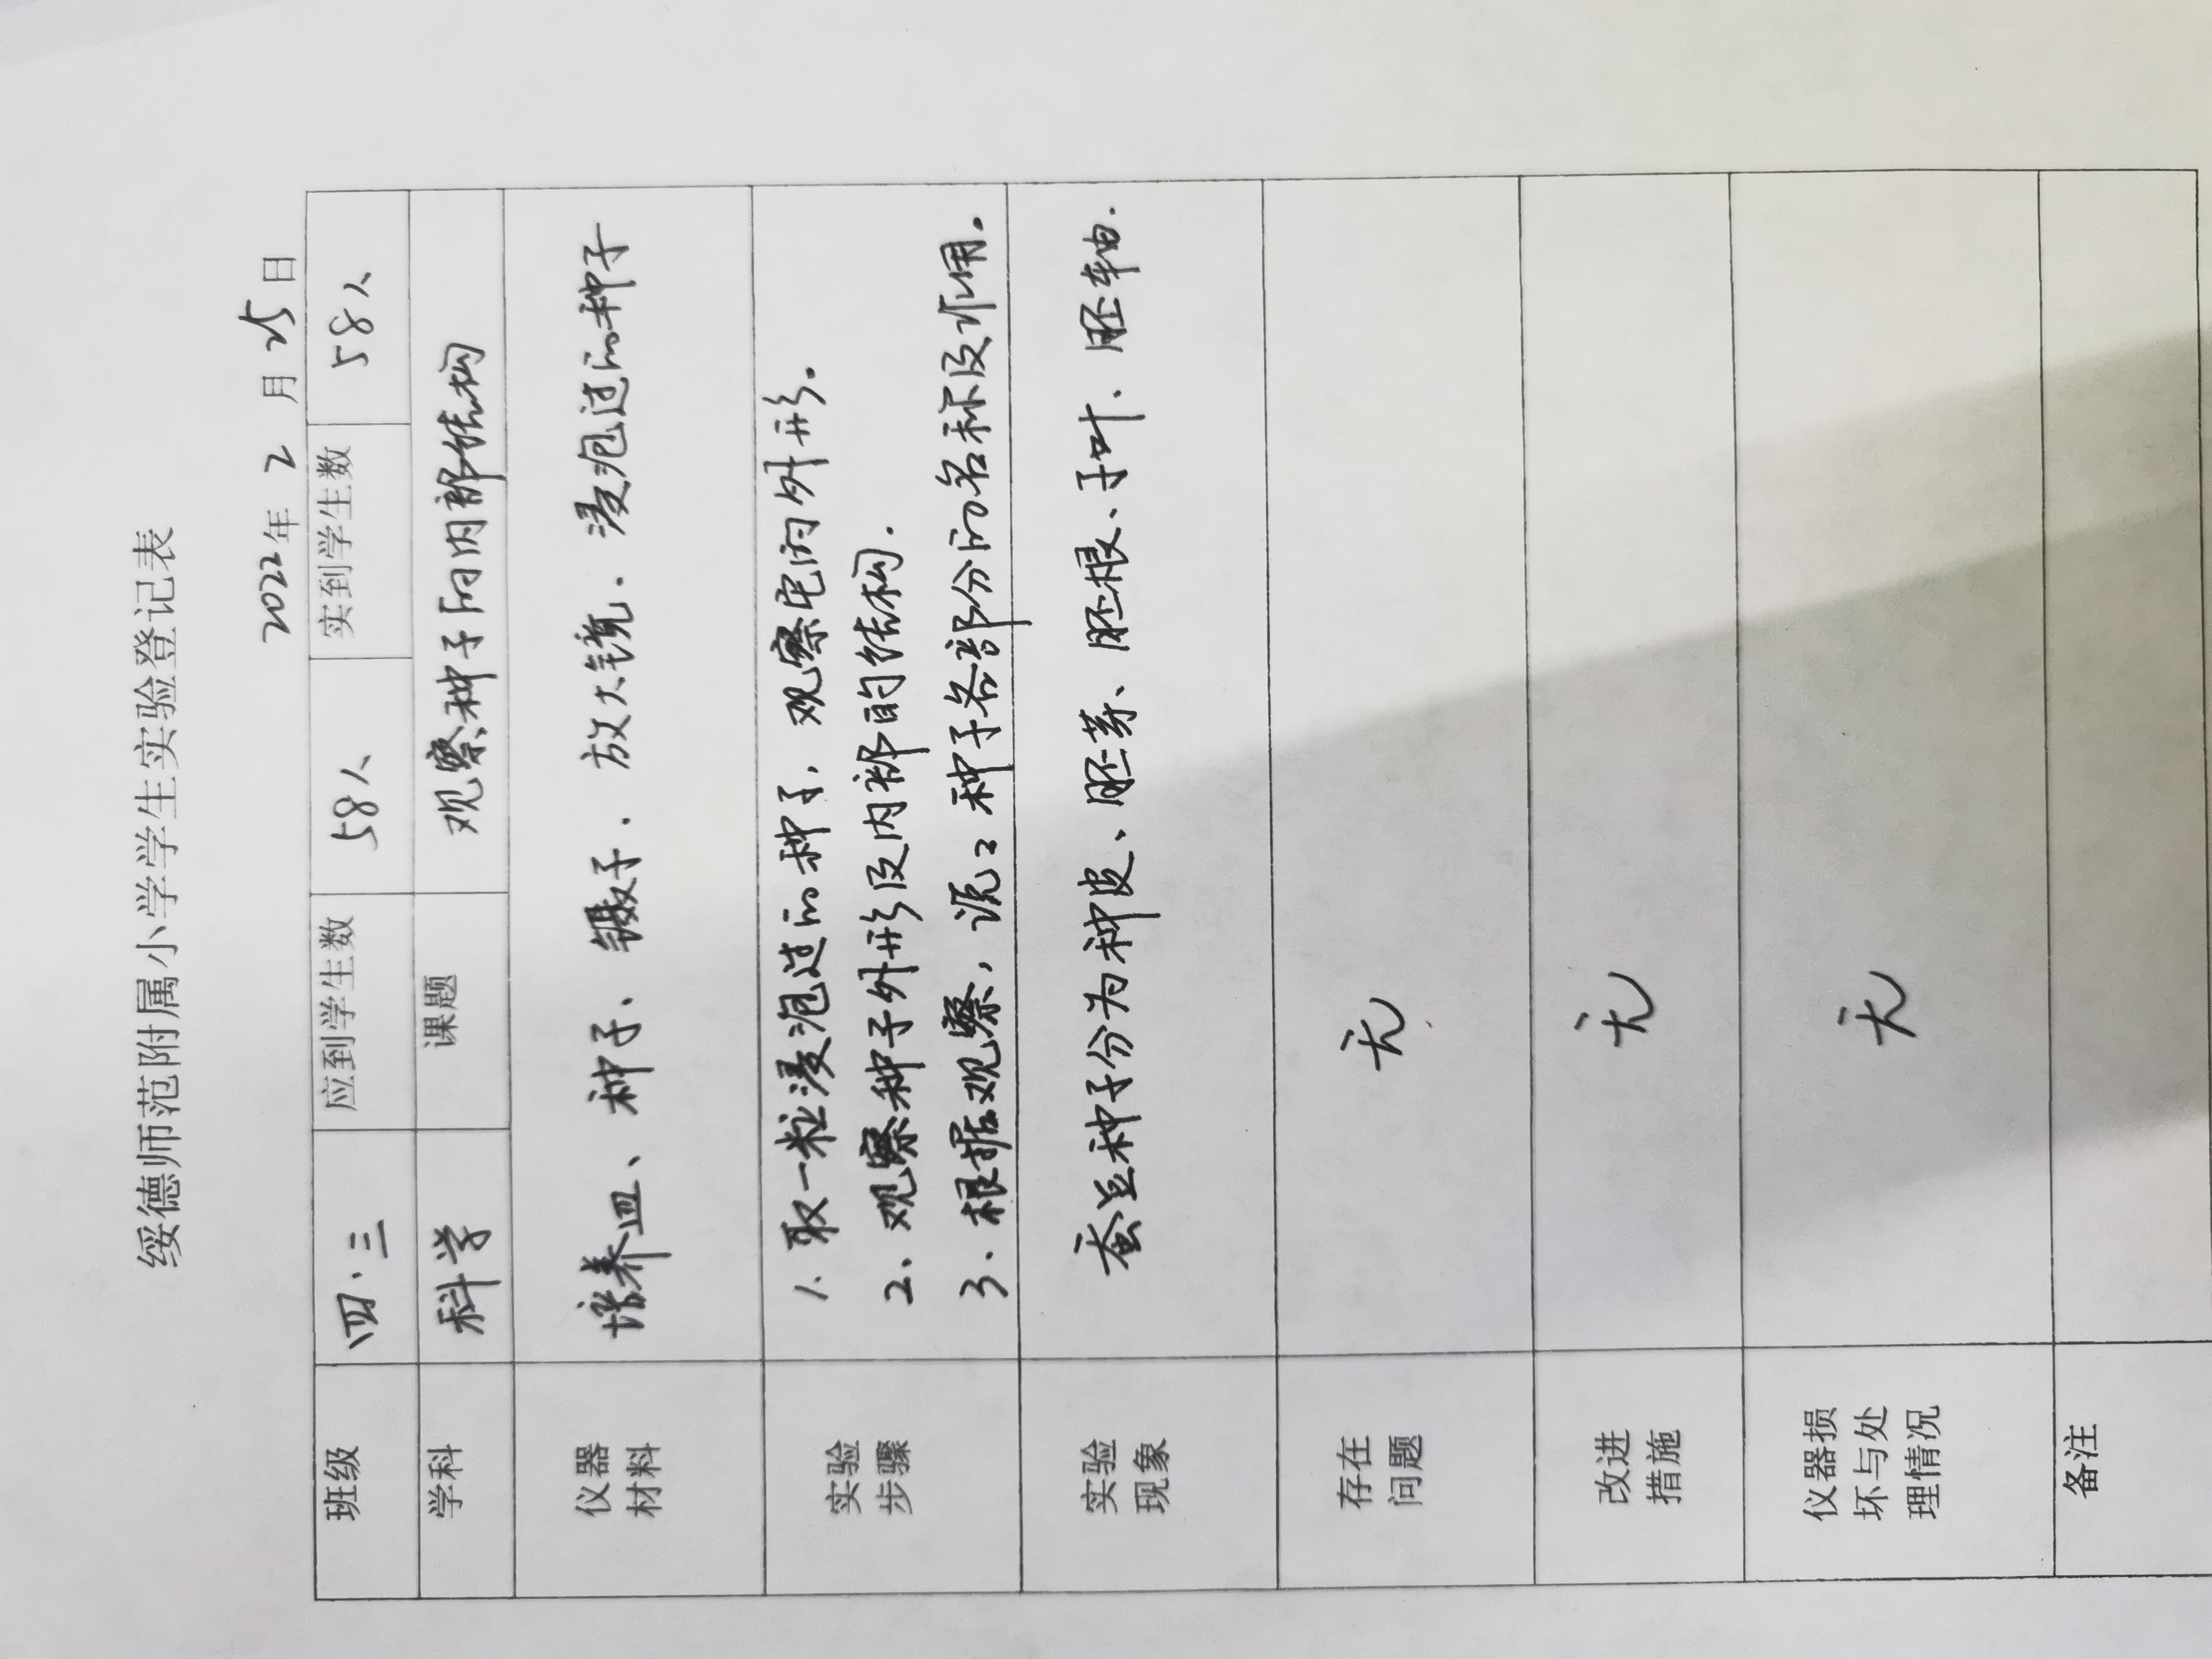 绥德师范附属小学学生实验登记表
2022年 2 月 25 日
班级 四.三 应到学生数 58人 实到学生数 58人
学科 科学 课题 观察种子的内部结构
仪器
材料
培养皿、种子、镊子、放大镜、浸泡过的种子
实验
步骤
1、取一粒浸泡过的种子,观察它的外形。
2、观察种子外形及内部的结构.
3、根据观察,说2种子各部分的名称及作用。
实验
现象
蚕豆种子份为种皮、胚芽、胚根、子叶、胚轴.
存在
问题
无
改进
措施
无
仪器损
坏与处
理情况
无
备注